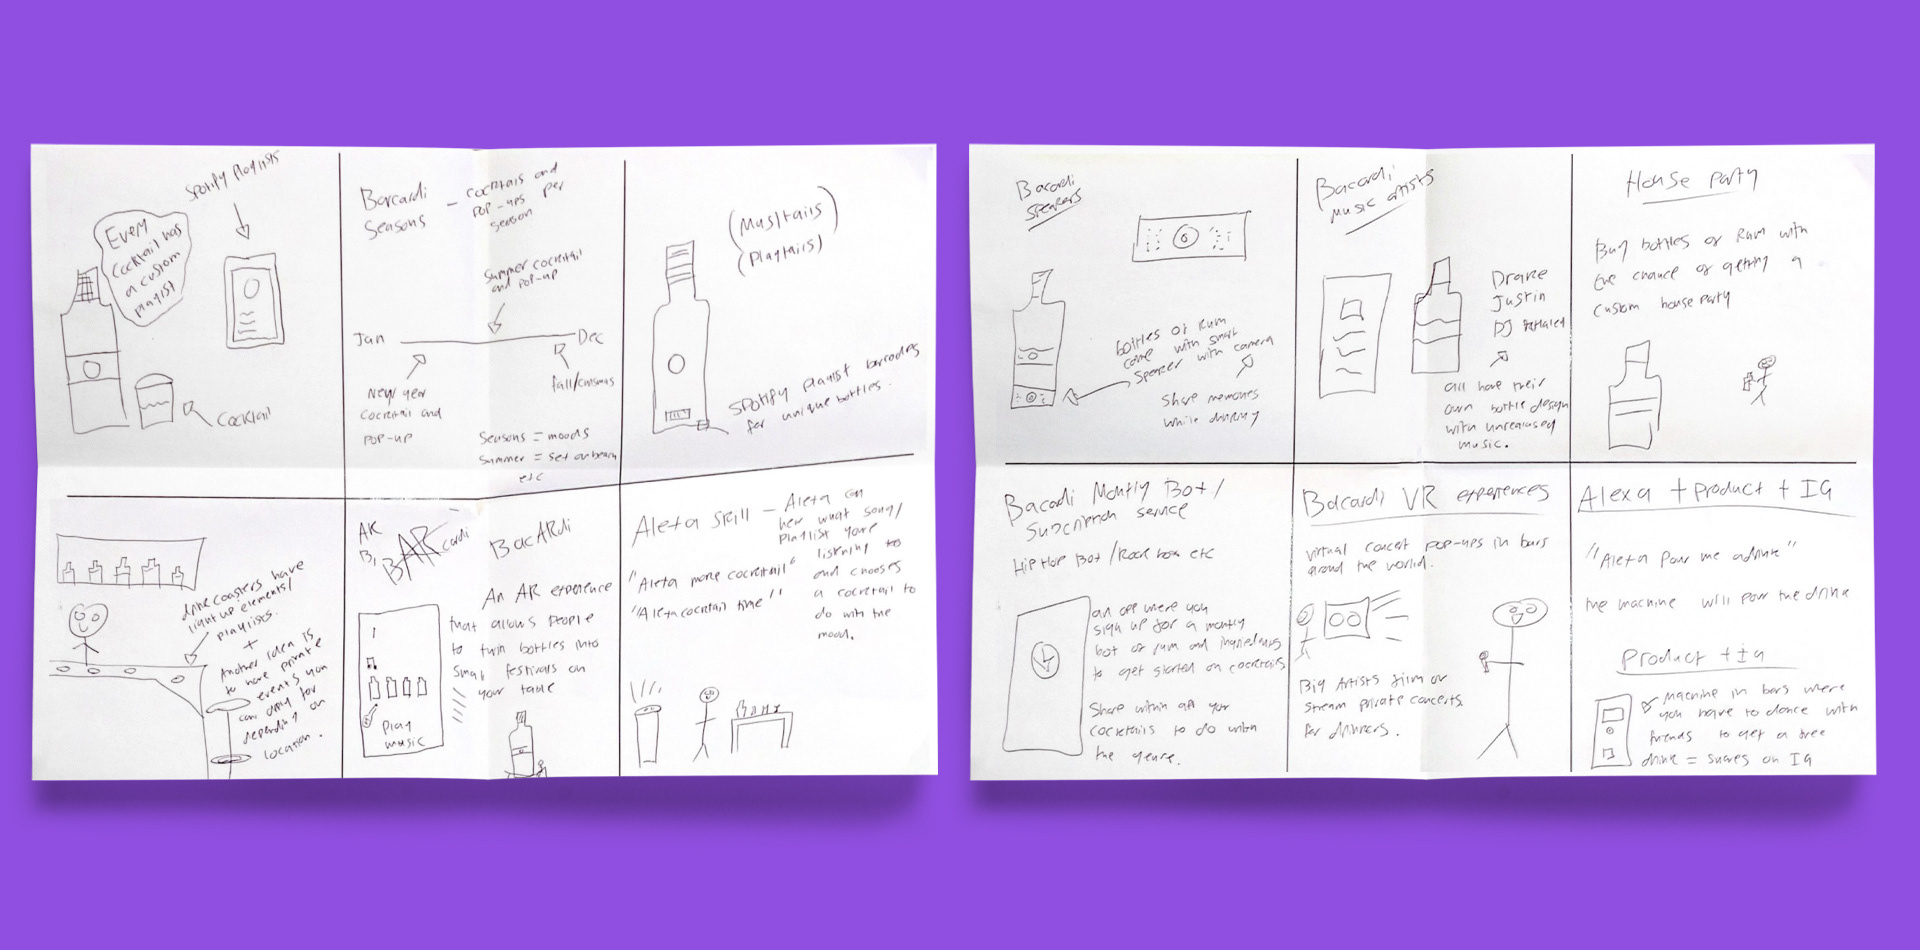 Spotify Playlists
Every
cocktail has
a custom
playlist
Cocktail
Barcardi
Seasons
- cocktails and
pop-ups per
season
Summer cocktail
and pop-up
Jan
Dec
New year
cocktail and
pop-up
fall/
Seasons = moods
Summer = set on beach
etc
(Musltails)
(Playtails)
Spotify playlist barcodes
for unique bottles.
drink coasters have
light up elements/
playlists.
+
Another idea is
to have private
events you
can only for
depending on
location.
AR
B,
BARcardi
BacARdi
An AR experience
that allows people
to turn bottles into
small festivals on
your table
Play
music
Alexa Skill - Alexa can
hear what song/
playlist youre
listening to
and chooses
a cocktail to
do with the
mood.
"Alexa make cocktail"
"Alexa cocktail time"
Bacardi
Speakers
bottles of Rum
come with small
speaker with camera
Share memories
while drinking
Bacardi
music artists
Drake
Justin
DJ Khaled
all have their
own bottle design
with unreleased
music.
House Party
Buy bottles of Rum with
the chance of getting a
custom house party
Bacardi Montly Box/
Subscription service
Hip Hop Box / Rock box etc
an app were you
sign up for a montly
box of rum and ingredients
to get started on cocktails
Share within app your
cocktails to do with
the genre.
Bacardi VR experiences
virtual concert pop-ups in bars
around the world.
Big Artists film or
stream private concerts
for drinkers.
Alexa + product + IG
"Alexa pour me a drink"
the machine will pour the drink
Product + IG
Machine in bars where
you have to dance with
friends to get a free
drink = shares on IG